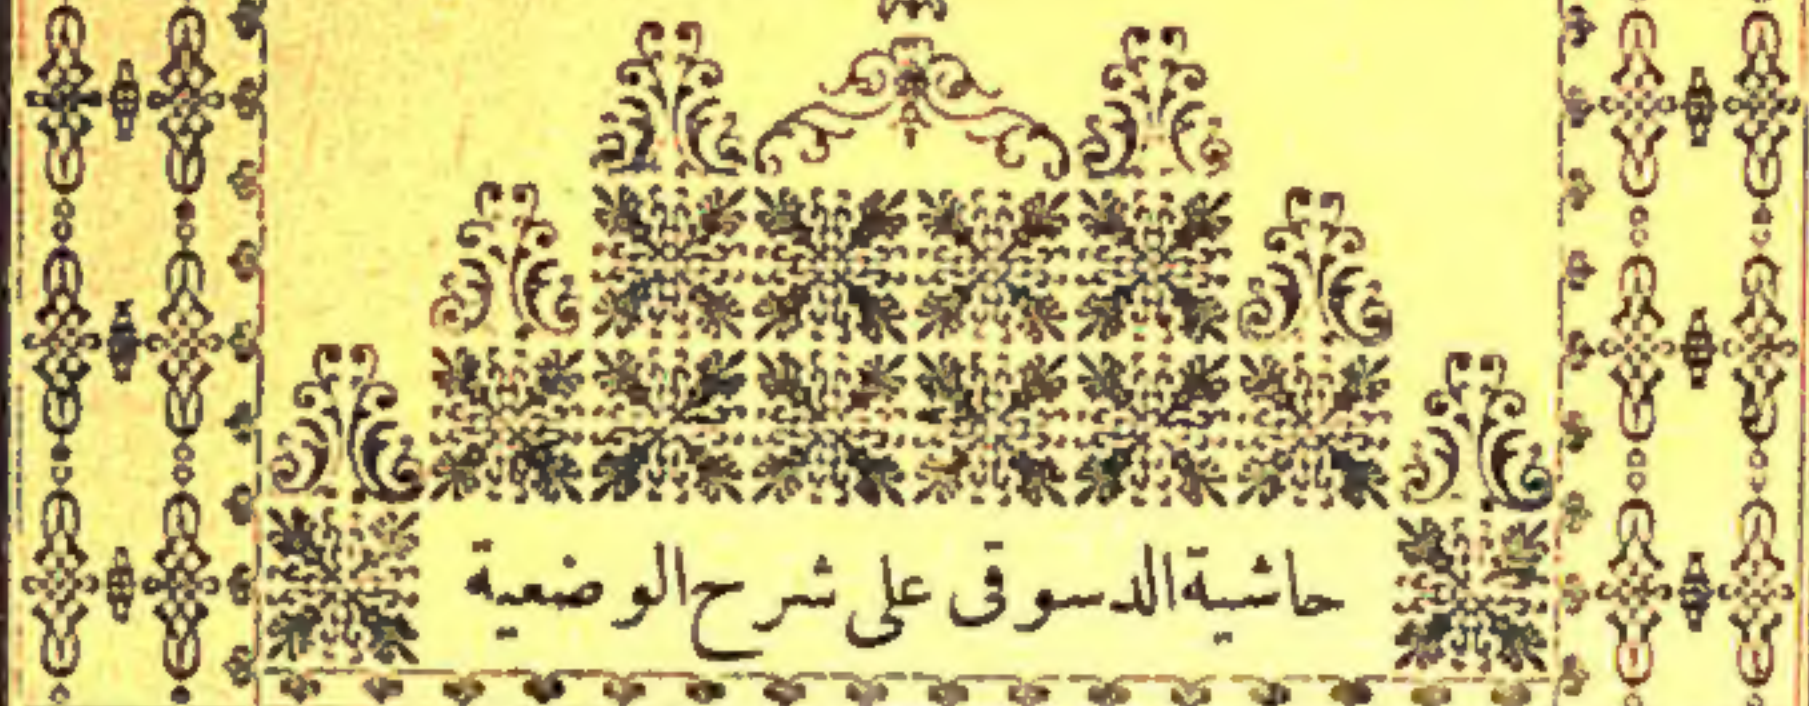 حاشية الدسوقى على شرح الوضعية